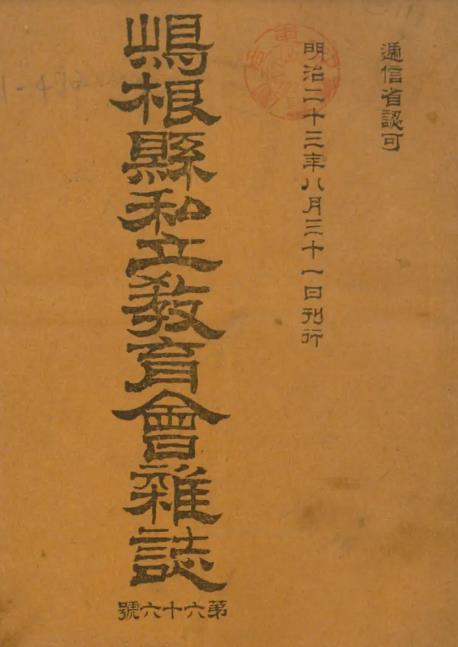 逓信省認可
明治二十三年八月三十一日刊行
嶋根縣私立教育會雑誌
第六十六號